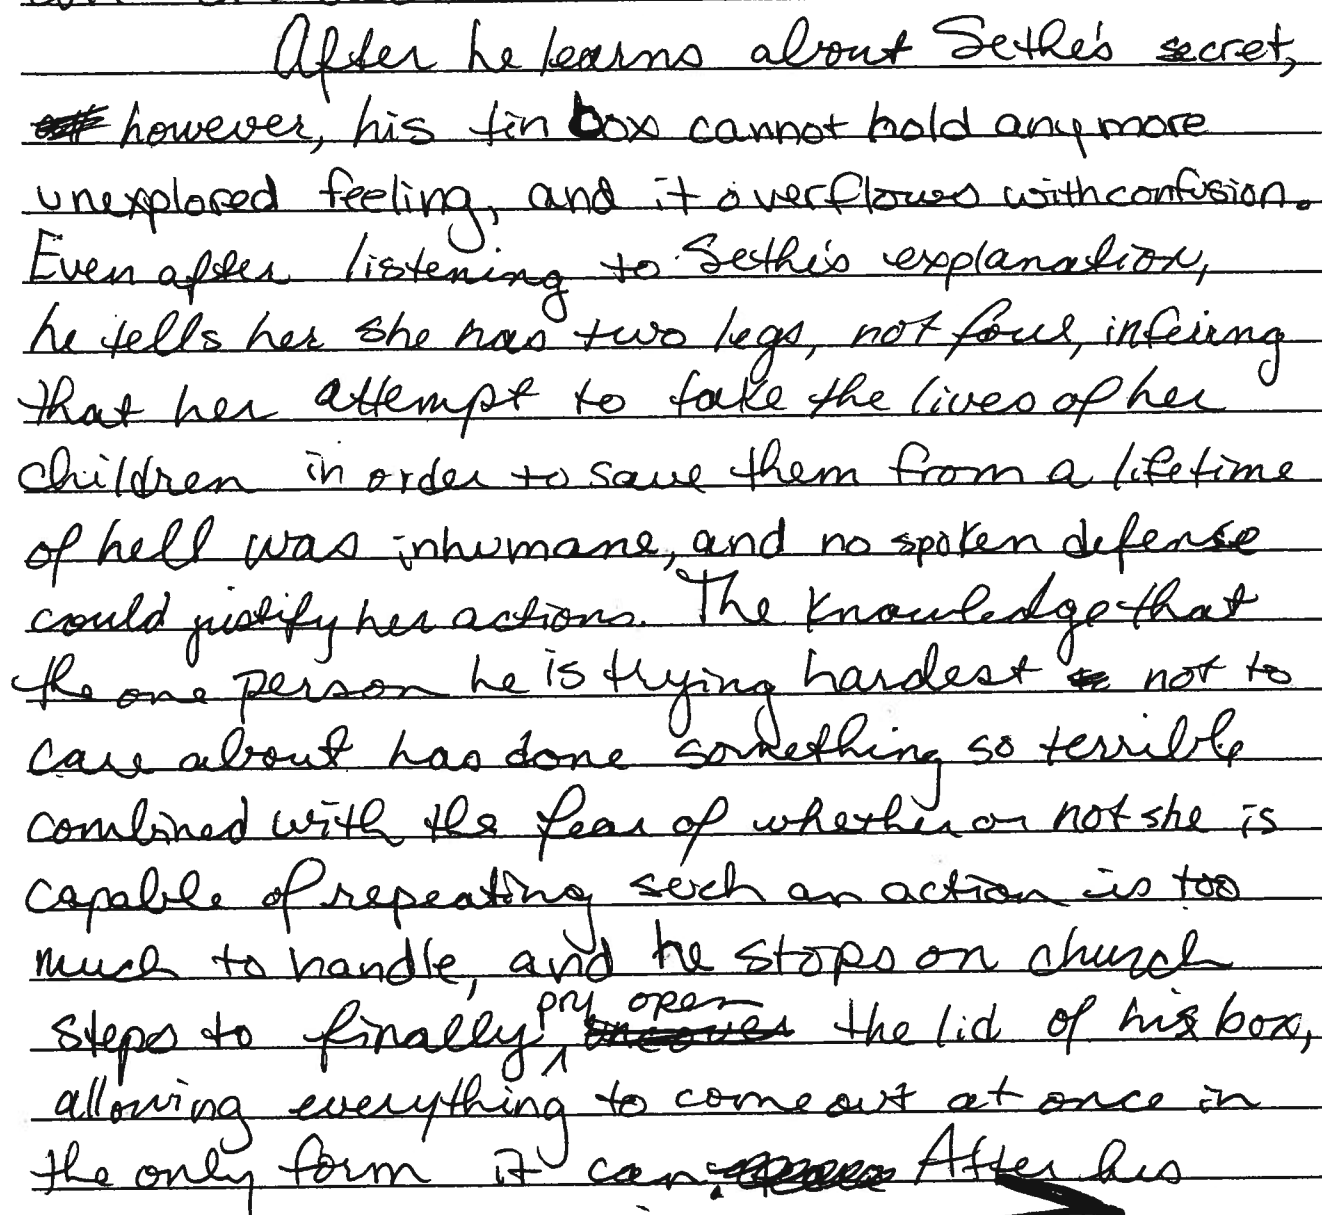 After he learns about Sethe's secret,
however, his tin box cannot hold anymore
unexplored feeling, and it overflows with confusion.
Even after listening to Sethe's explanation,
he tells her she has two legs, not four, infering
that her attempt to take the lives of her
children in order to save them from a lifetime
of hell was inhumane, and no spoken defense
could justify her actions. The knowledge that
the one person he is trying hardest not to
care about has done something so terrible
combined with the fear of whether or not she is
capable of repeating such an action is too
much to handle, and he stops on church
steps to finally pry open the lid of his box,
allowing everything to come out at once in
the only form it can. After his